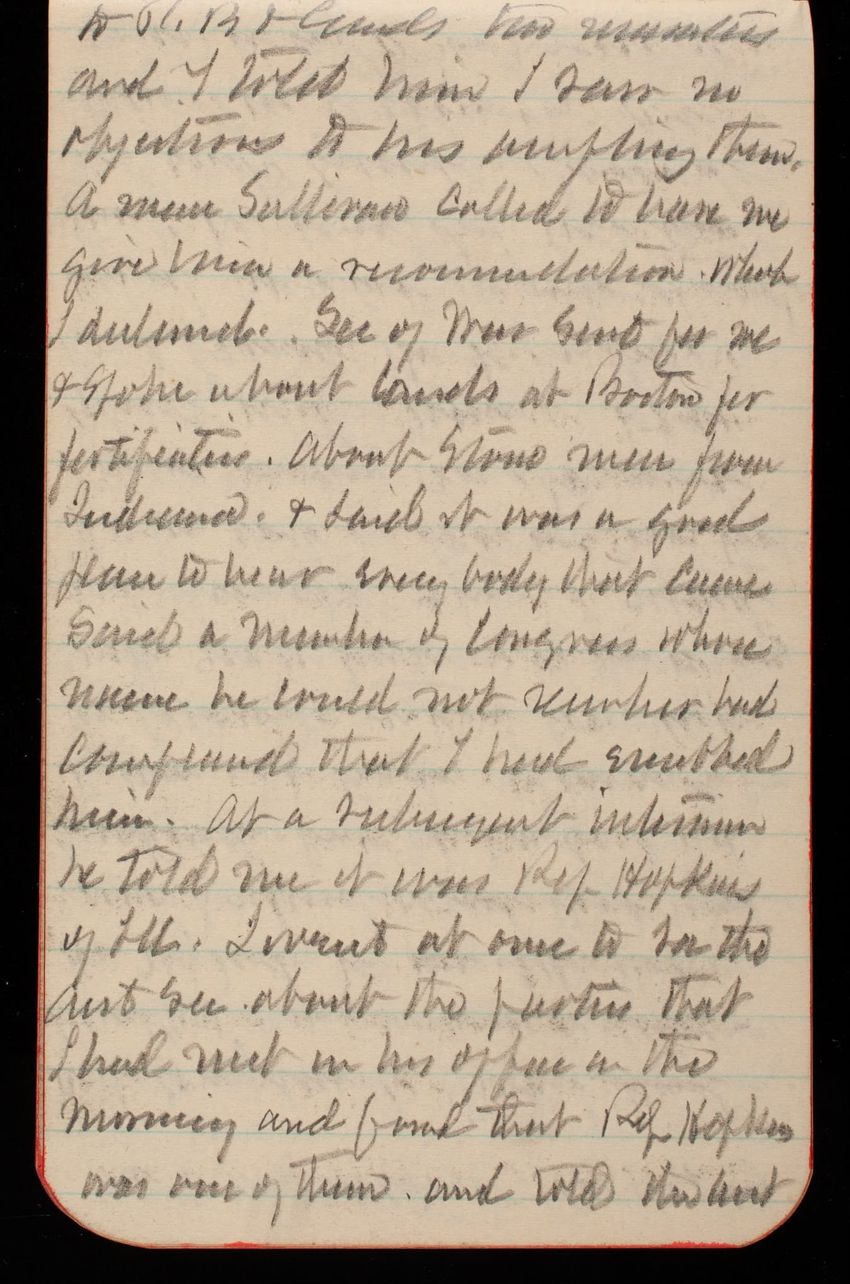 to
and I told him I saw no
objections to his accepting them.
A man Sullivan called to have me
give him a recommendation. which
I declined. Sec of War sent for me
& spoke about lands at Boston for
fortification. About Stone men from
Indiana. & said it was a good
plan to hear every body that came
Said a Member of Congress whose
name he could not remember had
complained that I had snubbed
him. At a subsequent interview
he told me it was Rep Hopkins
of Ill. I went at once to see the
Asst Sec. about the parties that
I had met in his office in the
morning and found that Rep Hopkins
was one of them. and told the Asst